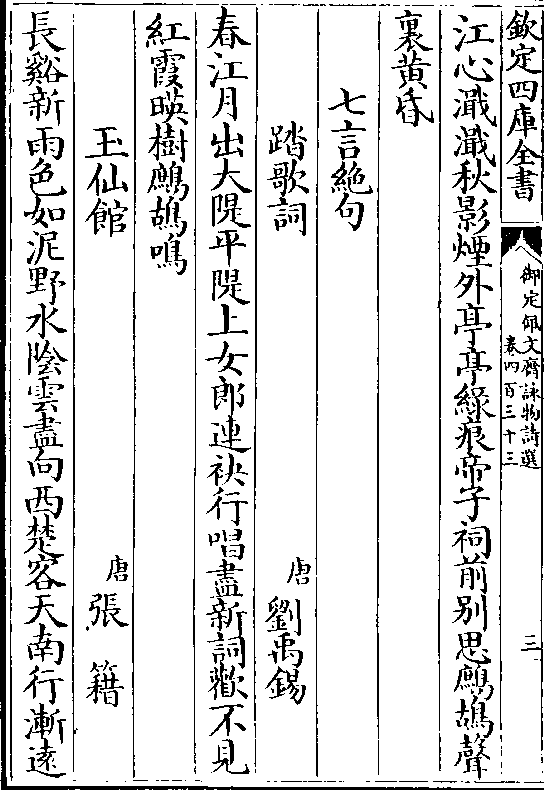 欽定四庫全書
御定佩文齋詠物詩選
卷四百三十三
三
江心瀐瀐秋影煙外亭亭綠痕帝子祠前别思鷓鴣聲
裏黄昏
七言絶句
踏歌詞
唐 劉禹錫
春江月出大隄平隄上女郎連袂行唱盡新詞歡不見
紅霞暎樹鷓鴣鳴
玉仙館
唐 張籍
長谿新雨色如泥野水陰雲盡向西楚客天南行漸遠